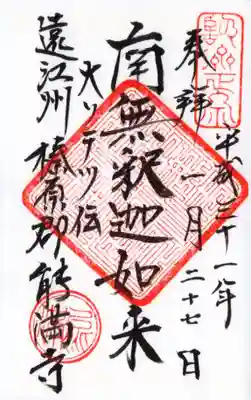 奉拝
平成二十一年
一月二十七日
南無釈迦如来
大ソテツ伝
遠江州榛原郡能満寺